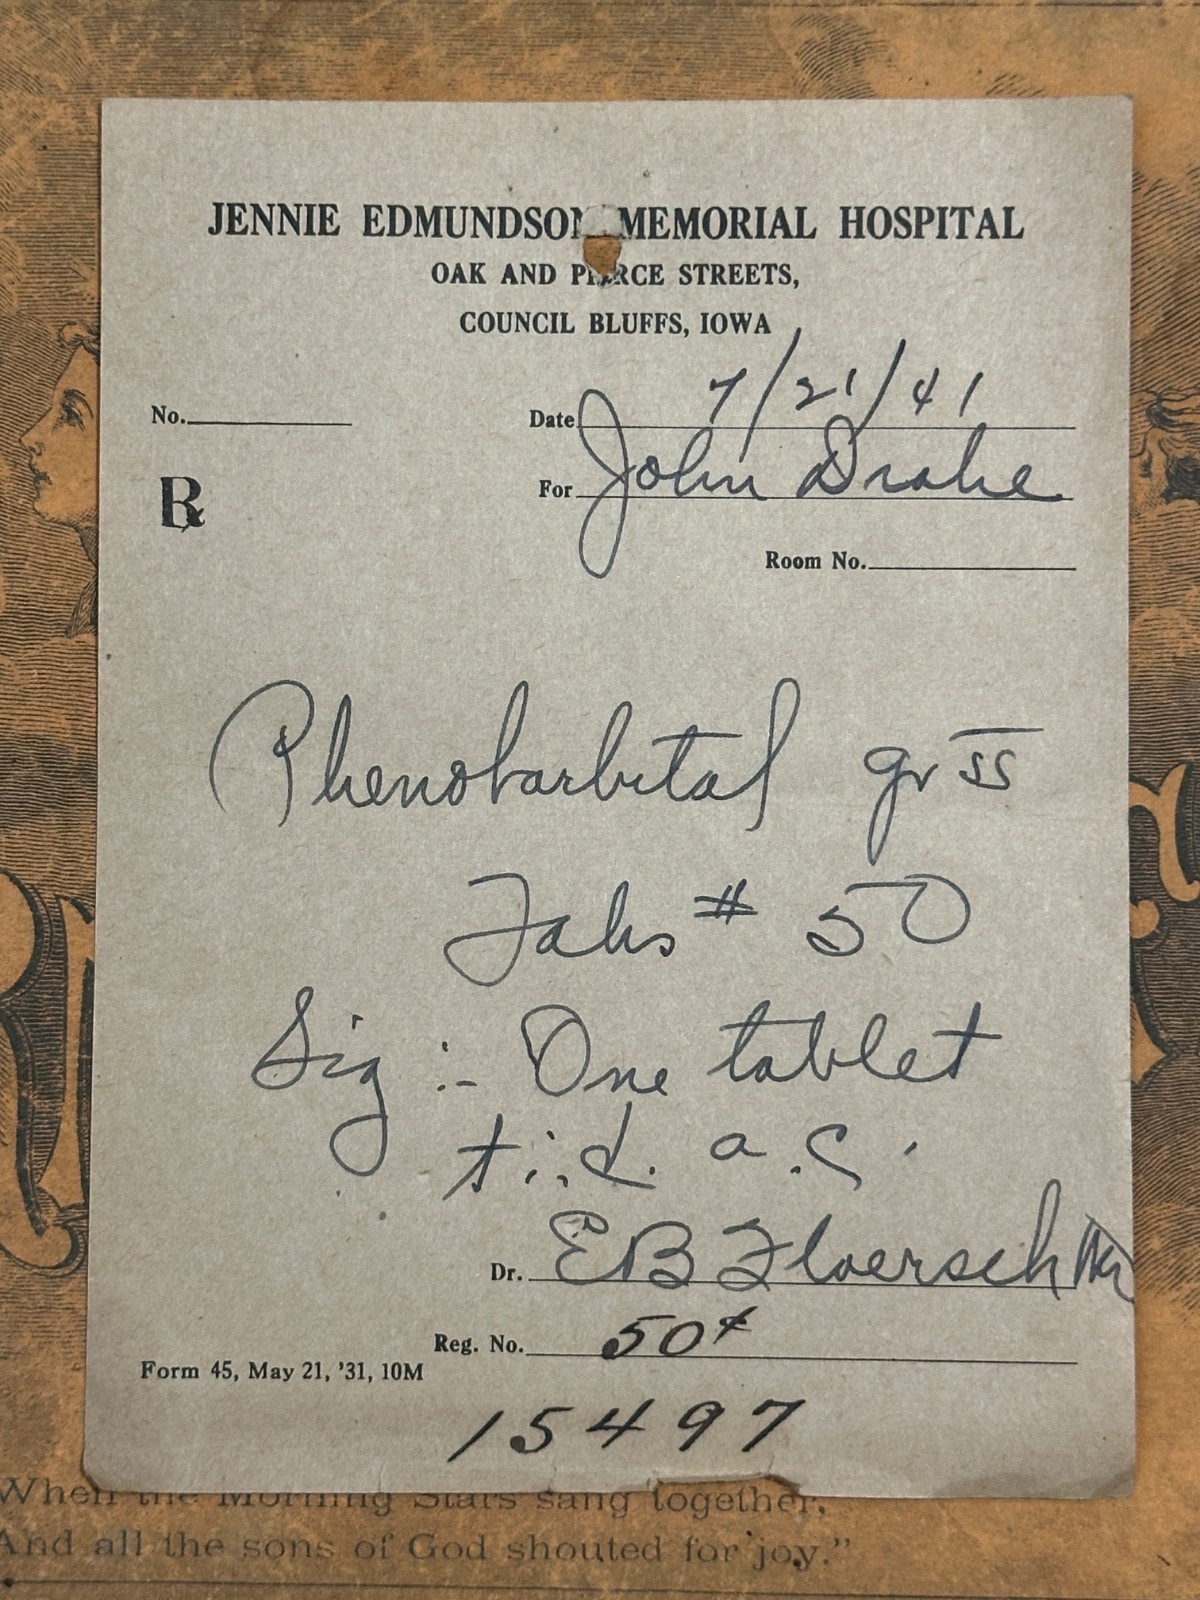 JENNIE EDMUNDSON MEMORIAL HOSPITAL
OAK AND PIERCE STREETS,
COUNCIL BLUFFS, IOWA
No. Date 7/21/41
℞ For John Drake
Room No.
Phenobarbital gr s̅s̅
Tabs # 50
Sig :- One tablet
t.i.d. a.c.
Dr. E B Floersch
Reg. No. 50¢
Form 45, May 21, '31, 10M
15497
When the Morning Stars sang together,
And all the sons of God shouted for joy."